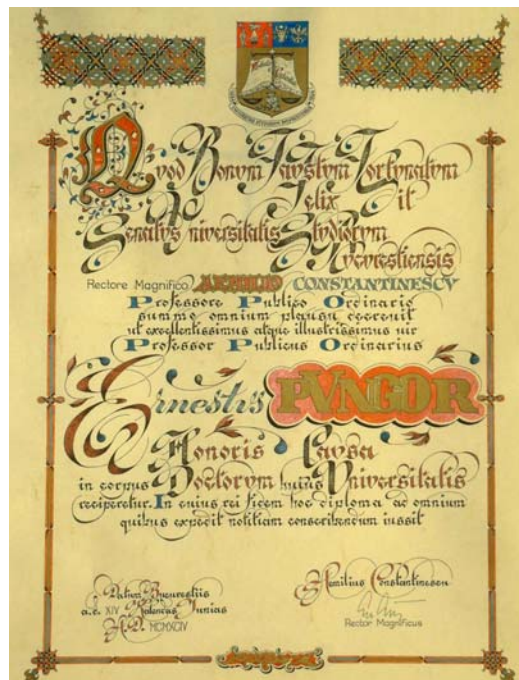 Qvod Bonvm Favstvm Fortvnatvm
Felix Sit
Senatvs Vniversitatis Stvdiorvm
Bvcvrestiensis
Rectore Magnifico AEMILIO CONSTANTINESCV
Professore Publico Ordinario
summo omnium plausu decreuit
ut excellentissimus atque illustrissimus uir
Professor Publicus Ordinarius
Ernestvs PVNGOR
Honoris Cavsa
in corpus Doctorvm huius Vniversitatis
reciperetur. In cuius rei fidem hoc diploma ad omnium
quibus expedit notitiam conscribendum iussit
Datum Bucurestiis
a.d. XIV Kalendas Iunias
A.D. MCMXCIV
Aemilius Constantinescu
Rector Magnificus